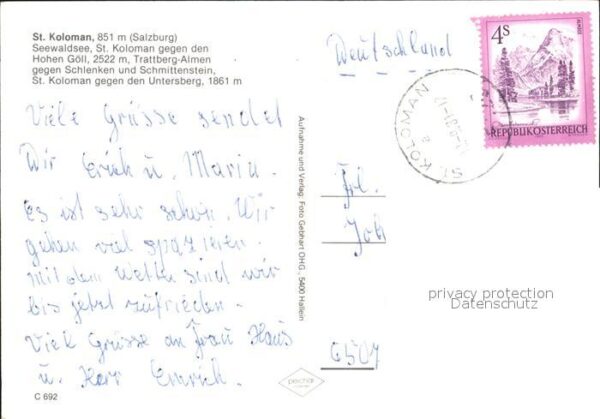 St. Koloman, 851 m (Salzburg)
Seewaldsee, St. Koloman gegen den
Hohen Göll, 2522 m, Trattberg-Almen
gegen Schlenken und Schmittenstein,
St. Koloman gegen den Untersberg, 1861 m
Viele Grüsse sendet
Dir Erich u. Maria.
Es ist sehr schön. Wir
gehen viel spazieren.
mit dem Wetter sind wir
bis jetzt zufrieden.
Viele Grüsse an Frau Haus
u. Herr Emrich.
C 692
Aufnahme und Verlag: Foto Gebhart OHG., 5400 Hallein
Deutschland
4S
REPUBLIK ÖSTERREICH
ST. KOLOMAN
Frl.
Joh
6507
privacy protection
Datenschutz